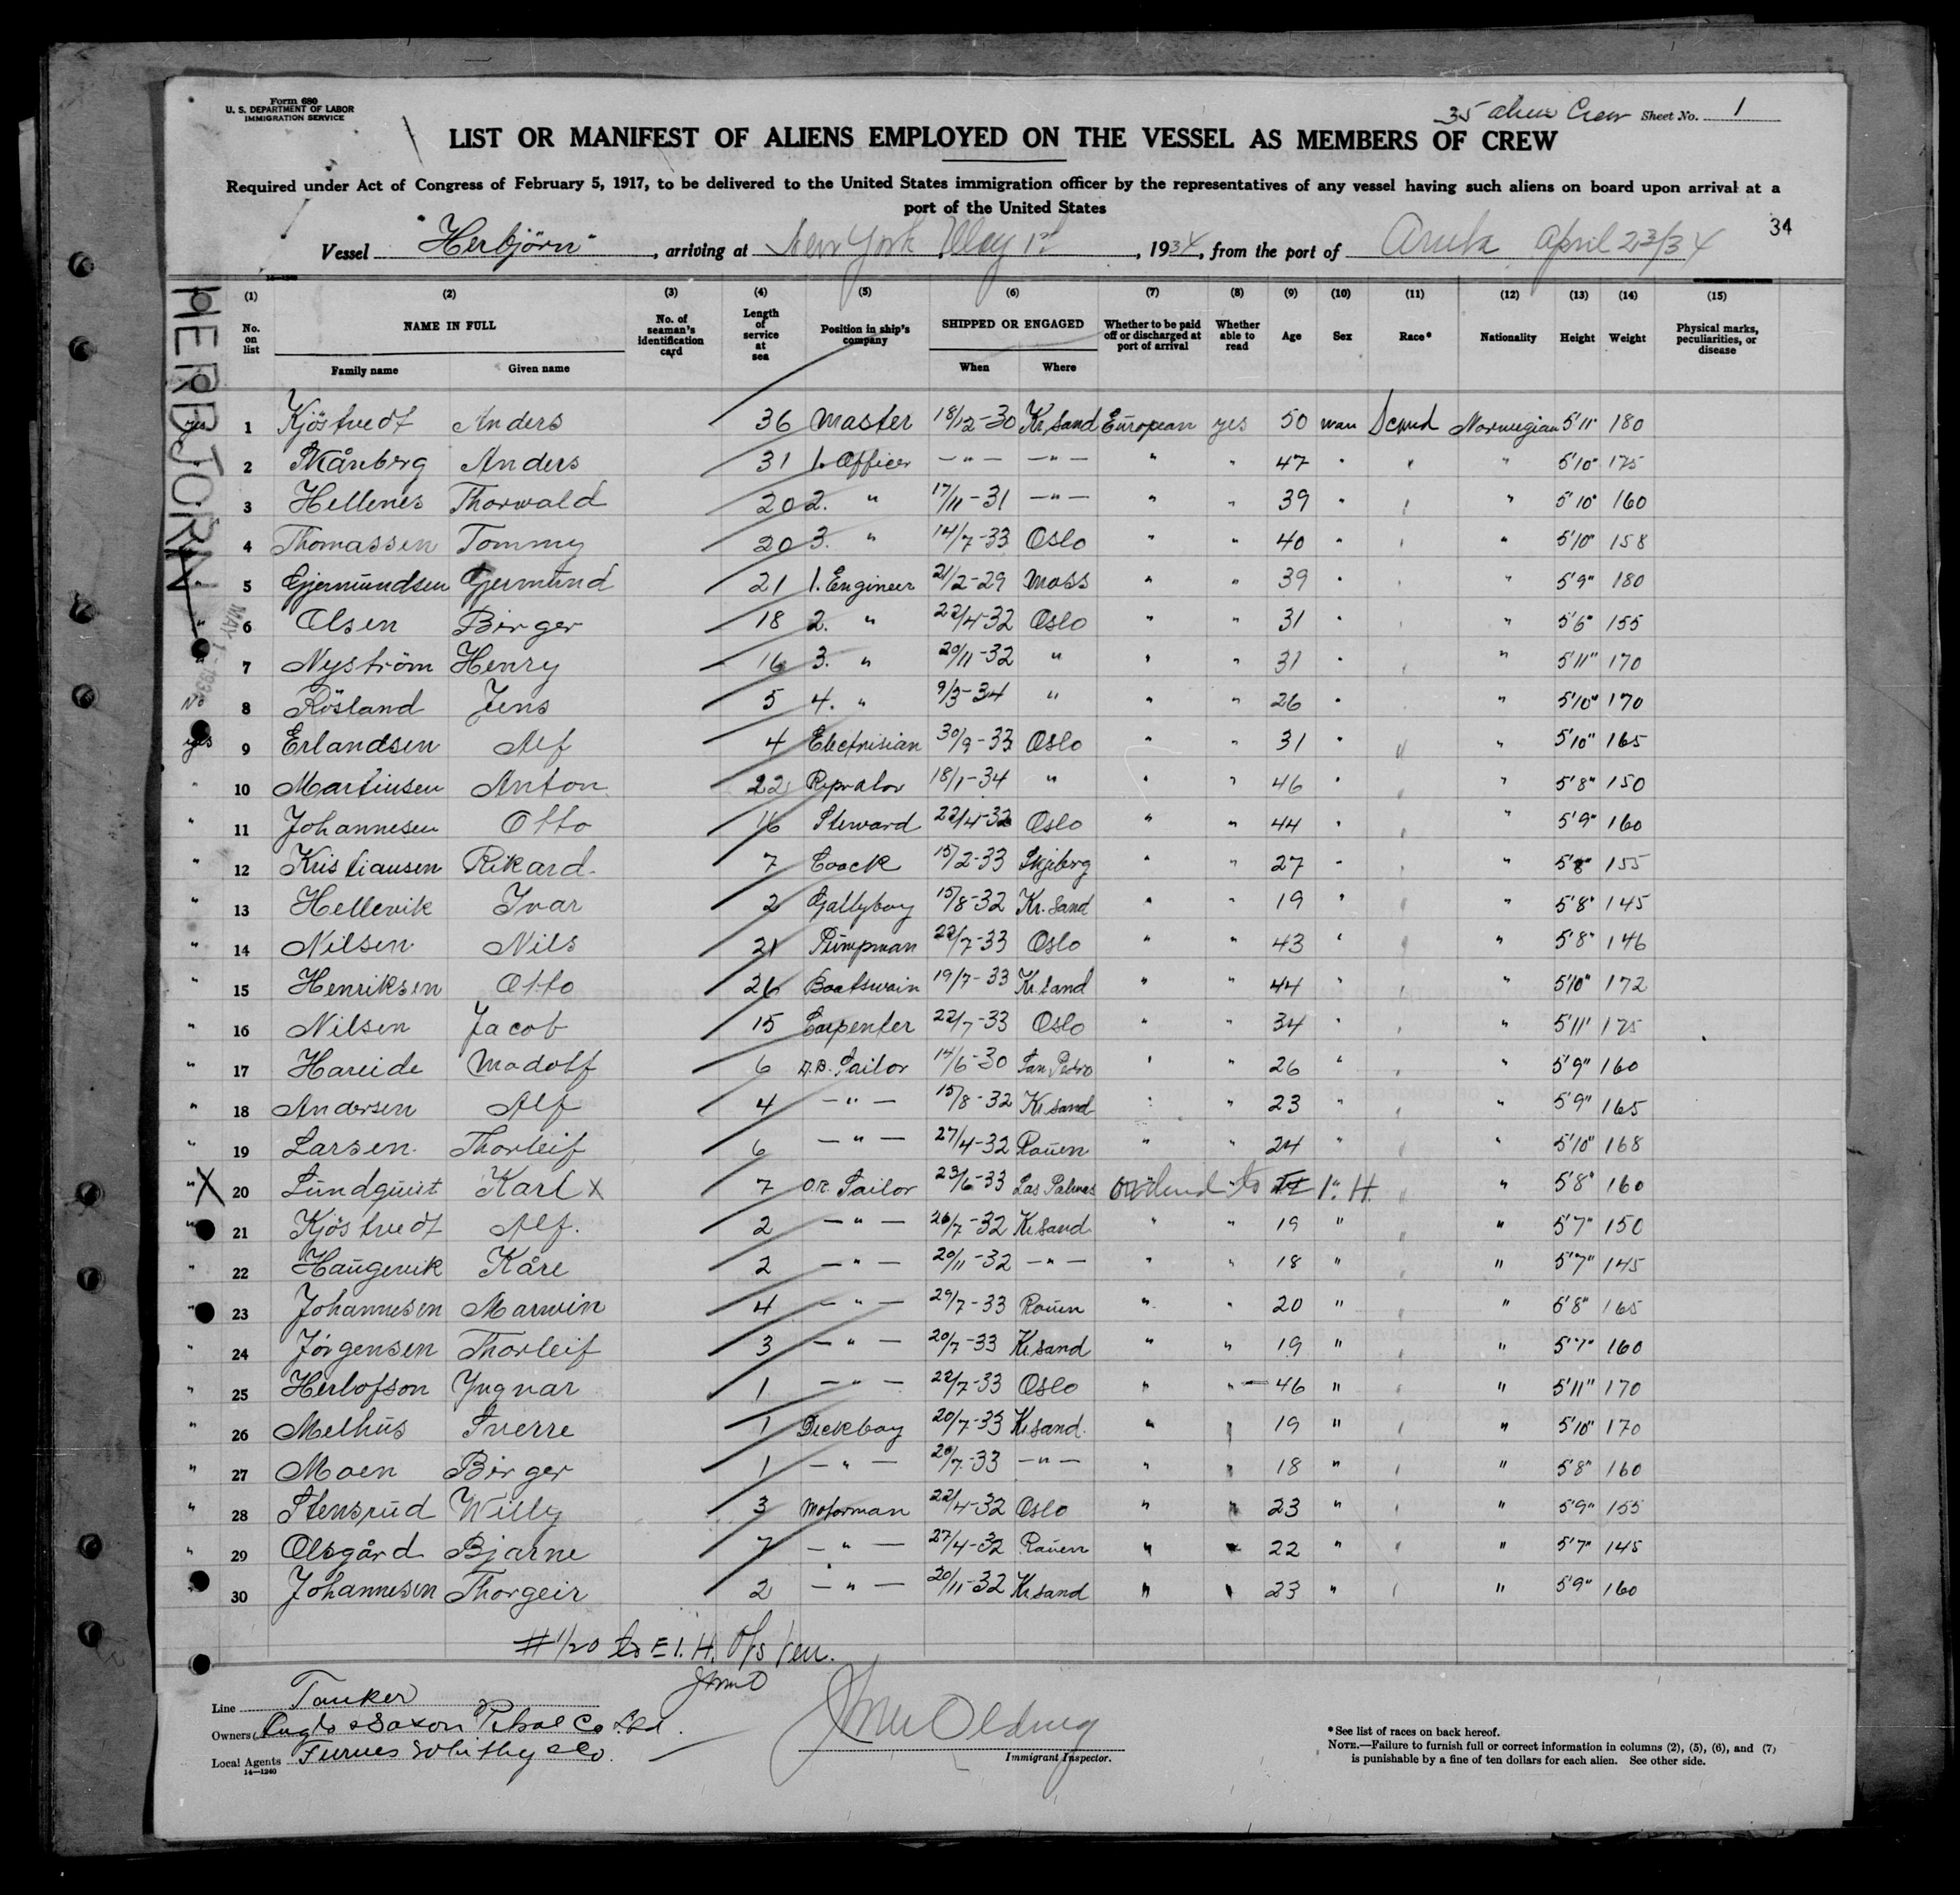 Form 680
U. S. DEPARTMENT OF LABOR
IMMIGRATION SERVICE
35 alien Crew Sheet No. 1
LIST OR MANIFEST OF ALIENS EMPLOYED ON THE VESSEL AS MEMBERS OF CREW
Required under Act of Congress of February 5, 1917, to be delivered to the United States immigration officer by the representatives of any vessel having such aliens on board upon arrival at a
port of the United States
34
Vessel "Herbjörn", arriving at New York May 1st, 1934, from the port of Aruba April 23/34
HERBJORN
MAY 1 - 193
(1) (2) (3) (4) (5) (6) (7) (8) (9) (10) (11) (12) (13) (14) (15)
No. on list NAME IN FULL Family name Given name No. of seaman's identification card Length of service at sea Position in ship's company SHIPPED OR ENGAGED When Where Whether to be paid off or discharged at port of arrival Whether able to read Age Sex Race* Nationality Height Weight Physical marks, peculiarities, or disease
yes 1 Kjöstvedt Anders 36 Master 18/12-30 Kr.sand European yes 50 man Scand Norwegian 5'11" 180
2 Skånberg Anders 31 1. Officer —"— —"— " " 47 " " " 5'10" 175
3 Hellenes Thorwald 20 2. " 17/11-31 —"— " " 39 " " " 5'10" 160
" 4 Thomassen Tommy 20 3. " 14/7-33 Oslo " " 40 " " " 5'10" 158
" 5 Gjermundsen Gjermund 21 1. Engineer 21/2-29 Moss " " 39 " " " 5'9" 180
" 6 Olsen Birger 18 2. " 22/4-32 Oslo " " 31 " " " 5'6" 155
" 7 Nyström Henry 16 3. " 20/11-32 " " " 31 " " " 5'11" 170
No 8 Rösland Jens 5 4. " 9/3-34 " " " 26 " " " 5'10" 170
yes 9 Erlandsen Alf 4 Electrisian 30/9-33 Oslo " " 31 " " " 5'10" 165
" 10 Martinsen Anton 22 Reprator 18/1-34 " " " 46 " " " 5'8" 150
" 11 Johannesen Otto 16 Steward 22/4-32 Oslo " " 44 " " " 5'9" 160
" 12 Kristiansen Rikard 7 Coock 15/2-33 Skjeberg " " 27 " " " 5'8" 155
" 13 Hellevik Ivar 2 Gallyboy 15/8-32 Kr.sand " " 19 " " " 5'8" 145
" 14 Nilsen Nils 21 Pumpman 22/7-33 Oslo " " 43 " " " 5'8" 146
" 15 Henriksen Otto 26 Boatswain 19/7-33 Kr.sand " " 44 " " " 5'10" 172
" 16 Nilsen Jacob 15 Carpenter 22/7-33 Oslo " " 34 " " " 5'11" 175
" 17 Hareide Madolf 6 A.B. Sailor 14/6-30 San Pedro " " 26 " " " 5'9" 160
" 18 Andersen Alf 4 —"— 15/8-32 Kr.sand " " 23 " " " 5'9" 165
" 19 Larsen Thorleif 6 —"— 27/4-32 Rouen " " 24 " " " 5'10" 168
" X 20 Lundquist Karl x 7 O.R. Sailor 23/6-33 Las Palmas to I. H. " 5'8" 160
" 21 Kjöstvedt Alf. 2 —"— 26/7-32 Kr.sand " " 19 " " " 5'7" 150
" 22 Haugevik Kåre 2 —"— 20/11-32 —"— " " 18 " " 5'7" 145
" 23 Johannesen Marwin 4 —"— 29/7-33 Rouen " " 20 " " 5'8" 165
" 24 Jörgensen Thorleif 3 —"— 20/7-33 Kr.sand " " 19 " " " 5'7" 160
" 25 Herlofson Yngvar 1 —"— 22/7-33 Oslo " " 46 " " " 5'11" 170
" 26 Melhus Sverre 1 Deckboy 20/7-33 Kr.sand " " 19 " " " 5'10" 170
" 27 Moen Birger 1 —"— 20/7-33 —"— " " 18 " " " 5'8" 160
" 28 Stensrud Willy 3 Motorman 22/4-32 Oslo " " 23 " " " 5'9" 155
" 29 Olsgård Bjarne 7 —"— 27/4-32 Rouen " " 22 " " " 5'7" 145
" 30 Johannesen Thorgeir 2 —"— 20/11-32 Kr.sand " " 23 " " " 5'9" 160
#1/20 to E.I.H. O/S
Line Tanker
Owners Anglo Saxon Petrol Co Ltd.
Local Agents Furness Withy & Co.
14—1240
Immigrant Inspector.
*See list of races on back hereof.
NOTE.—Failure to furnish full or correct information in columns (2), (5), (6), and (7)
is punishable by a fine of ten dollars for each alien. See other side.